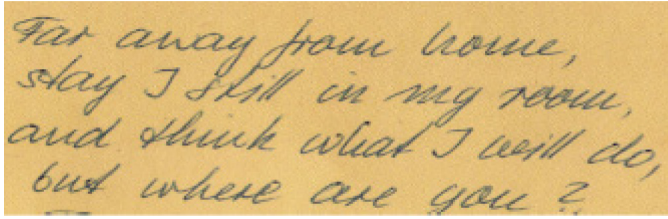 Far away from home,
stay I still in my room,
and think what I will do,
but where are you?